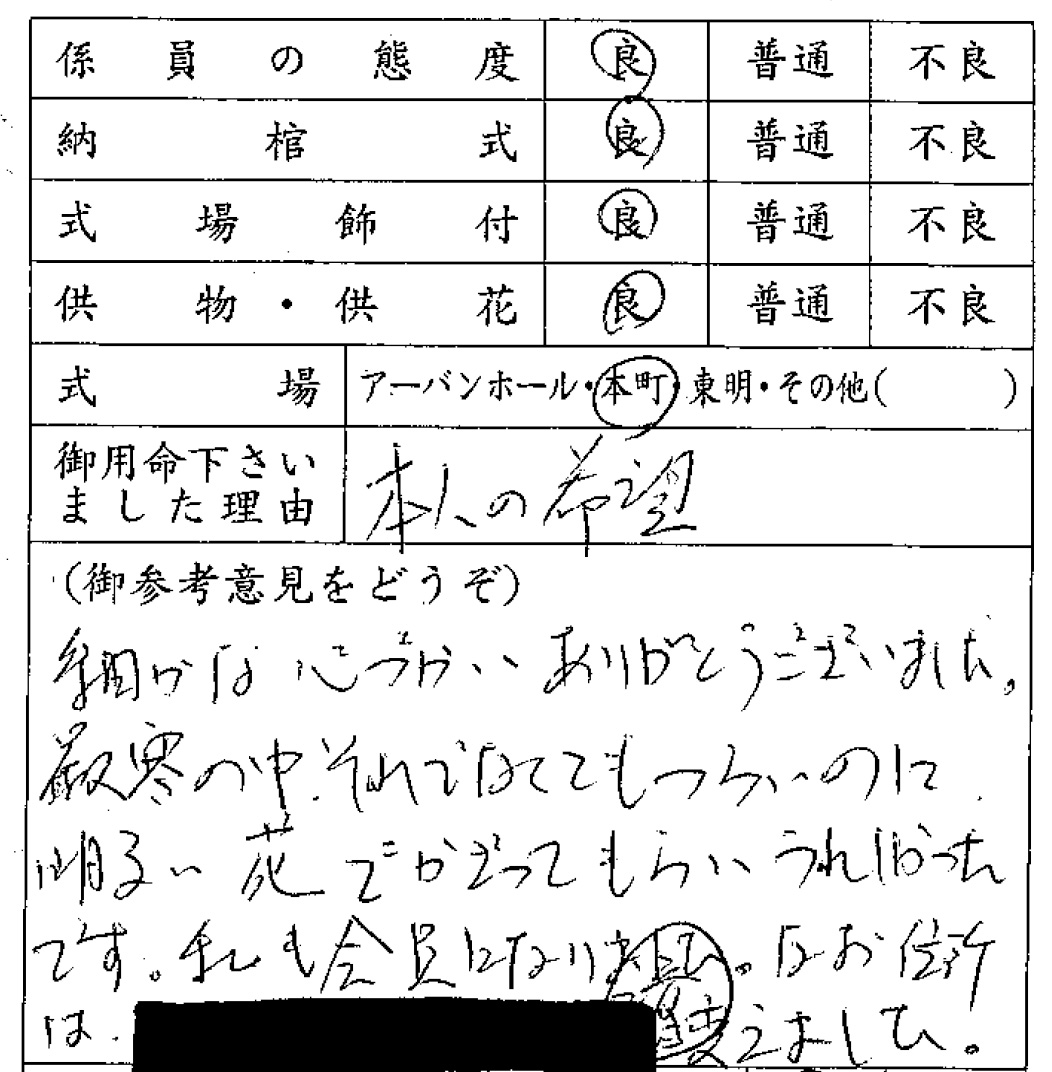 係員の態度 良 普通 不良
納棺式 良 普通 不良
式場飾付 良 普通 不良
供物・供花 良 普通 不良
式場 アーバンホール・本町・東明・その他( )
御用命下さい
ました理由 本人の希望
(御参考意見をどうぞ)
細かな心づかい ありがとうございました。
厳寒の中、それでなくてもつらいのに
明るい花でかざってもらいうれしかった
です。私も会員になりました。なお住所
は、 変えました。